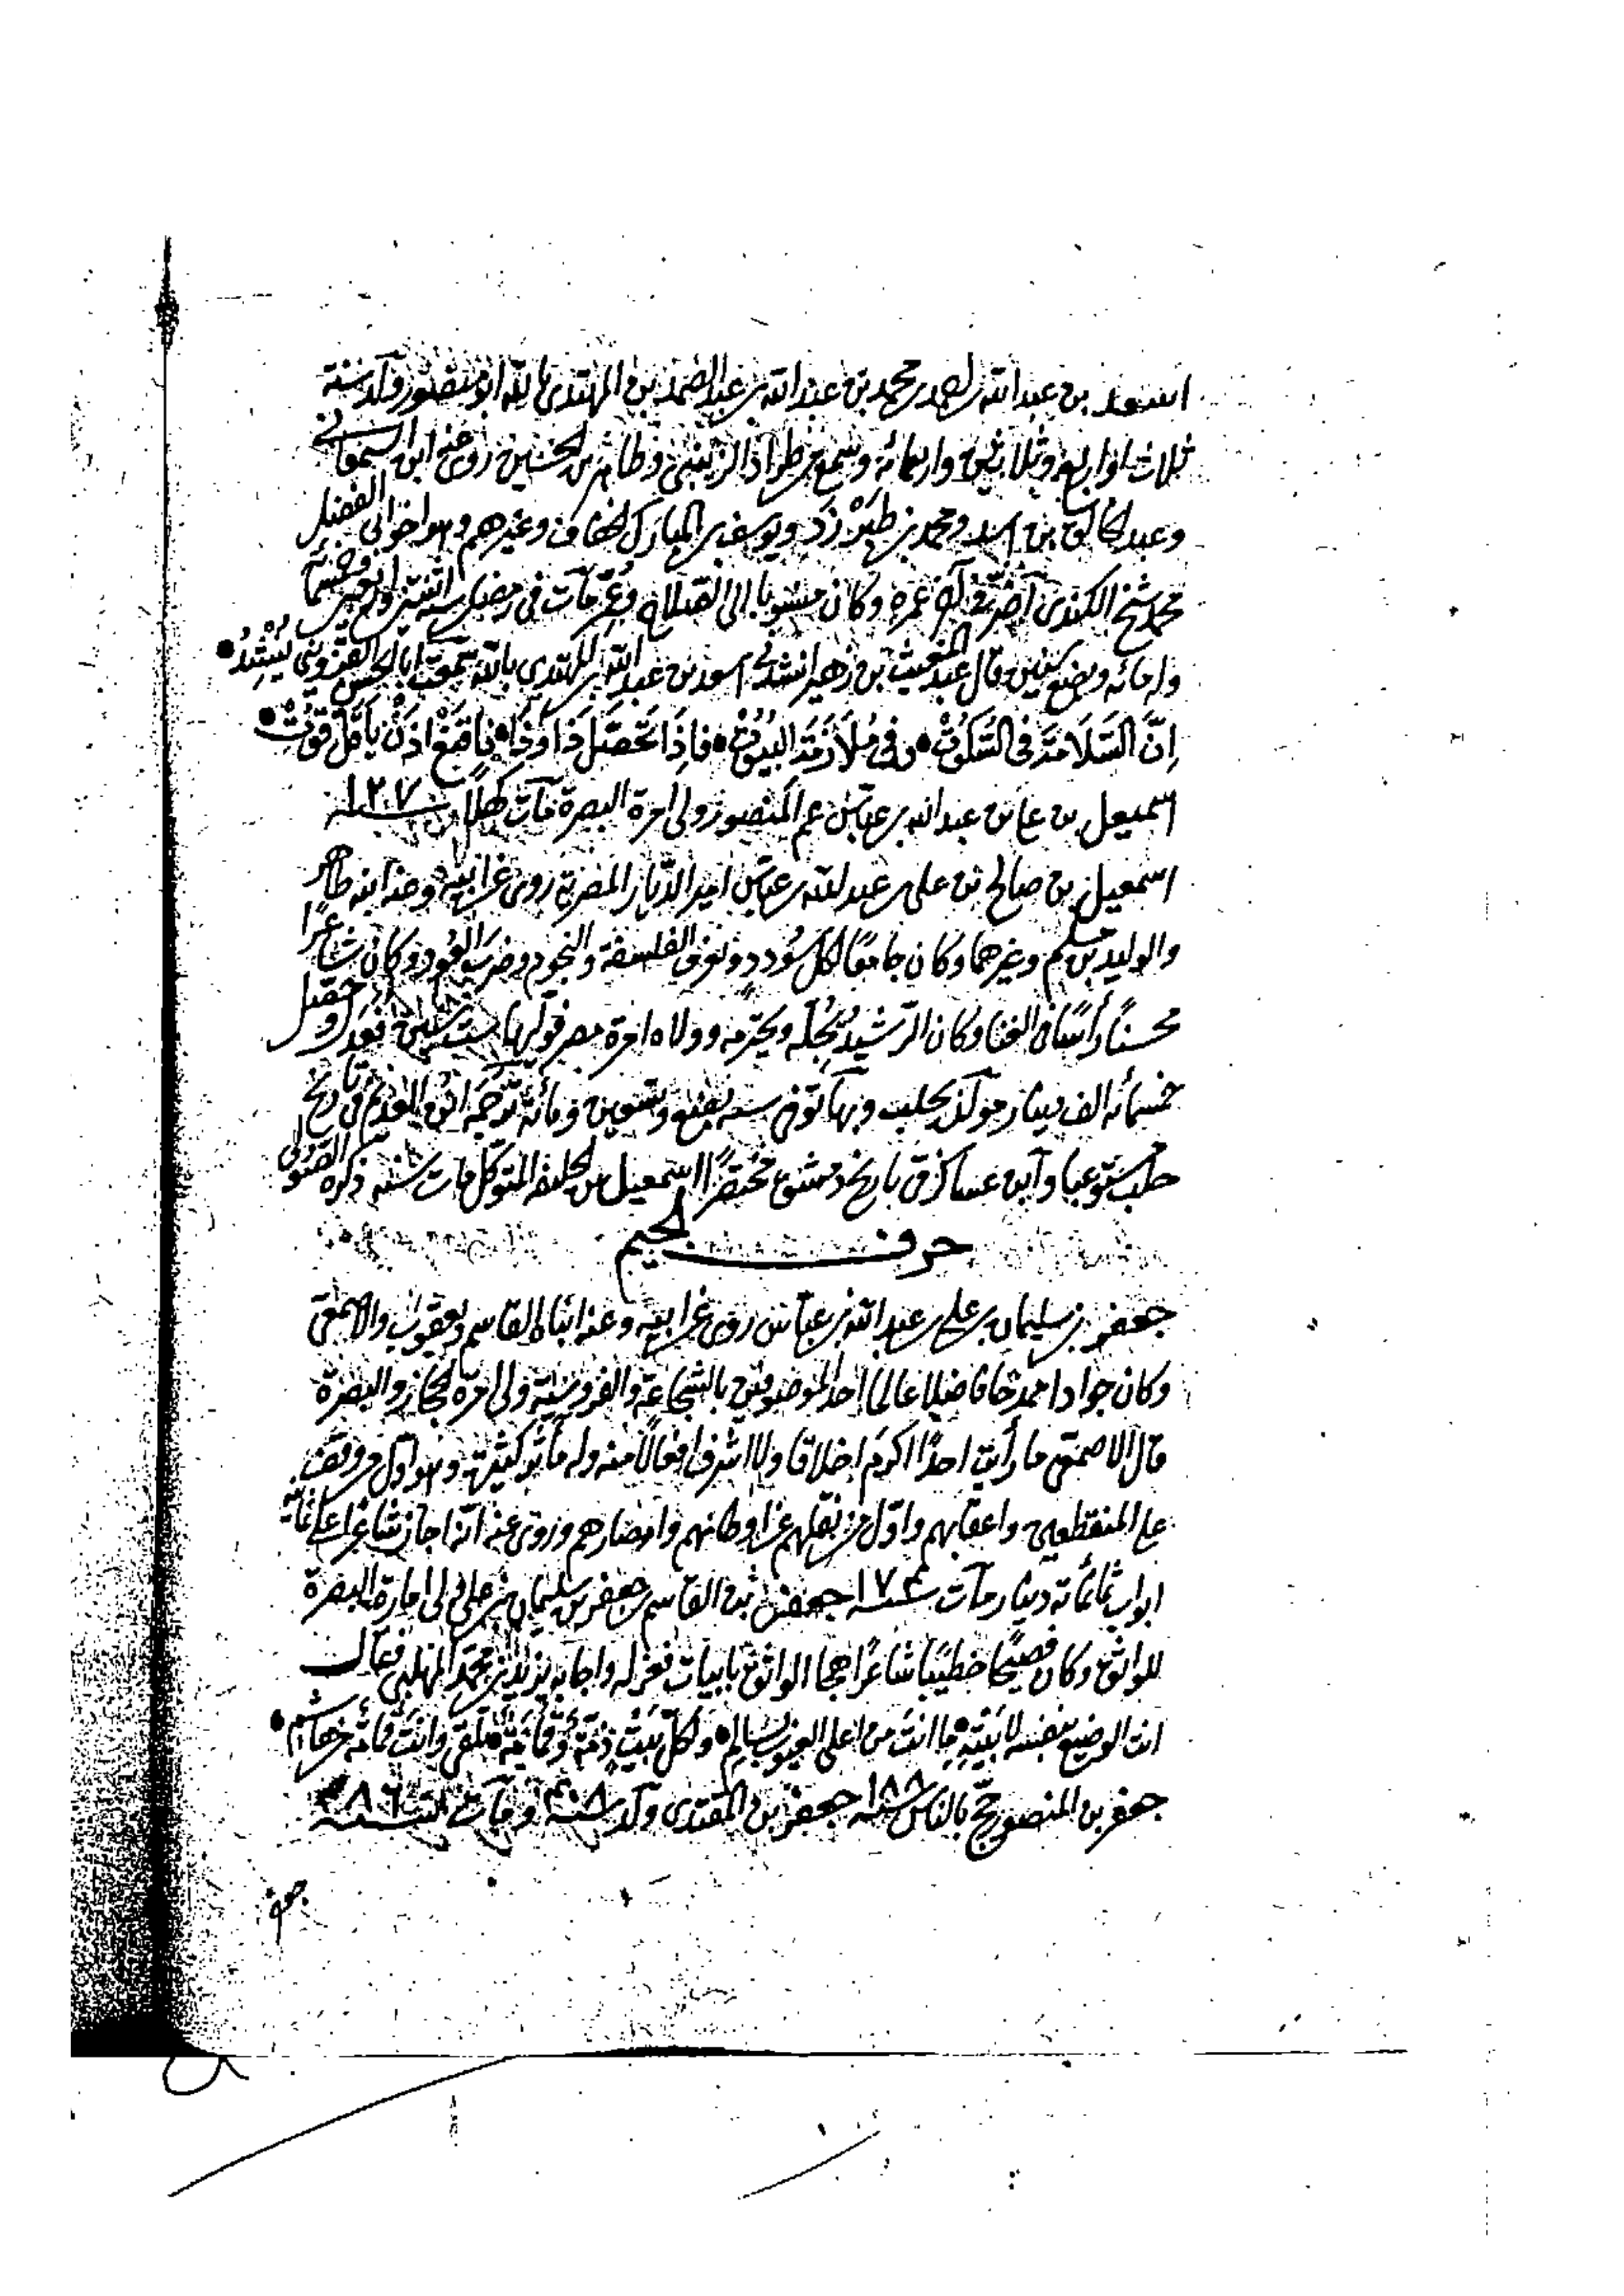 اسعد بن عبد الله بن احمد بن محمد بن عبد الله بن عبد الصمد بن المهتدى بالله ابو منصور ولد سنة
ثلاث او اربع وثلاثين واربعمائه وسمع من طراد الزينبى وطاهر بن الحسين روى عنه ابن السمعانى
وعبد الخالق بن اسد ومحمد بن طبرزد ويوسف بن المبارك الخفاف وغيرهم وهو اخو ابى الفضل
محمد شيخ الكندى اضر فى آخر عمره وكان منسوبا الى الصلاح وعمر مات فى رمضان سنه اثنتين وخمسمائه
وله مائه وبضع سنين قال عبد المغيث بن زهير انشدنى اسعد بن عبد الله المهتدى بالله سمعت ابا الحسن القزوينى ينشد
اِنَّ السَّلَامَةَ فى السُّكوت • وفى مُلَازَمَةِ البيوت • فاِذَا تَحَصَّلَ ذَا وَذَا • فاقنع اذن باَقلّ قوت •
اسمعيل بن على بن عبد الله بن عباس عم المنصور ولى امرة البصرة مات كهلًا سنه ١٢٧
اسمعيل بن صالح بن على بن عبد الله بن عباس امير الديار المصرية روى عن ابيه وعنه ابنه طاهر
والوليد بن مسلم وغيرهما وكان جامعًا لكل سُودد ويعرف الفلسفة والنجوم وضرب العود وكان شاعرًا
محسنًا رأسًا فى الغنا وكان الرشيد يُجلّه ويحترمه وولاه امرة مصر فوليها ست سنين فعدل وحصل
خمسمائه الف دينار مولده بحلب وبها توفى سنه بضع وتسعين ومائة ترجمه ابن العديم فى تاريخ
حلب مستوعبا وابن عساكر فى تاريخ دمشق مختصرًا اسمعيل بن الخليفه المتوكل مات سنه ذكره الصولى
حرف الجيم
جعفر بن سليمان بن على بن عبد الله بن عباس روى عن ابيه وعنه ابناه القاسم ويعقوب والاصمعى
وكان جوادا ممدحا فاضلا عالما احد الموصوفين بالشجاعة والفروسية ولى امرة الحجاز والبصرة
قال الاصمعى ما رأيت احدًا اكرم اخلاقا ولا اشرف افعالًا منه وله مآثر كثيرة وهو اول من وقف
على المنقطعين واعقابهم واوّل من نقلهم عن اوطانهم وامصارهم وروى عنه انه اجاز شاعرا على ثمانية
ابواب ثمانمائة دينار مات سنه ١٧٤ جعفر بن القاسم بن جعفر بن سليمان بن على ولى امارة البصرة
للواثق وكان فصيحًا خطيبًا شاعرًا هجا الواثق بابيات فعزله واجابه يزيد بن محمد المهلبى فقال
انت الوضيع بنفسه لا بَيْتِهِ • ما انتَ من اعلى العيوب بسالم • ولكلّ بيت ذمة وقمامة تلقى وانت قمامه من هاشم •
جعفر بن المنصور حج بالناس سنه ١٨٨ جعفر بن المقتدى ولد سنه ٤٨٠ ومات سنه ٤٨٦
جعفر